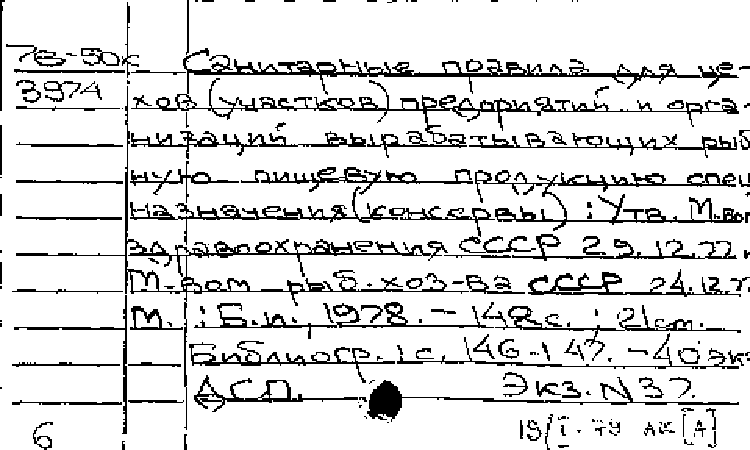 78-50к Санитарные правила для це-
3974 хов (участков) предприятий и орга-
низаций вырабатывающих рыб
ную пищевую продукцию спец
назначения (консервы) : Утв. М.вом
здравоохранения СССР 29.12.77
М-вом рыб.хоз-ва СССР 24.12.7
М. : Б.и., 1978. - 148 с. ; 21 см.
Библиогр. : с. 146-147. - 40 экз
ДСП. Экз. N 37.
6 19/I-79 АК [А]